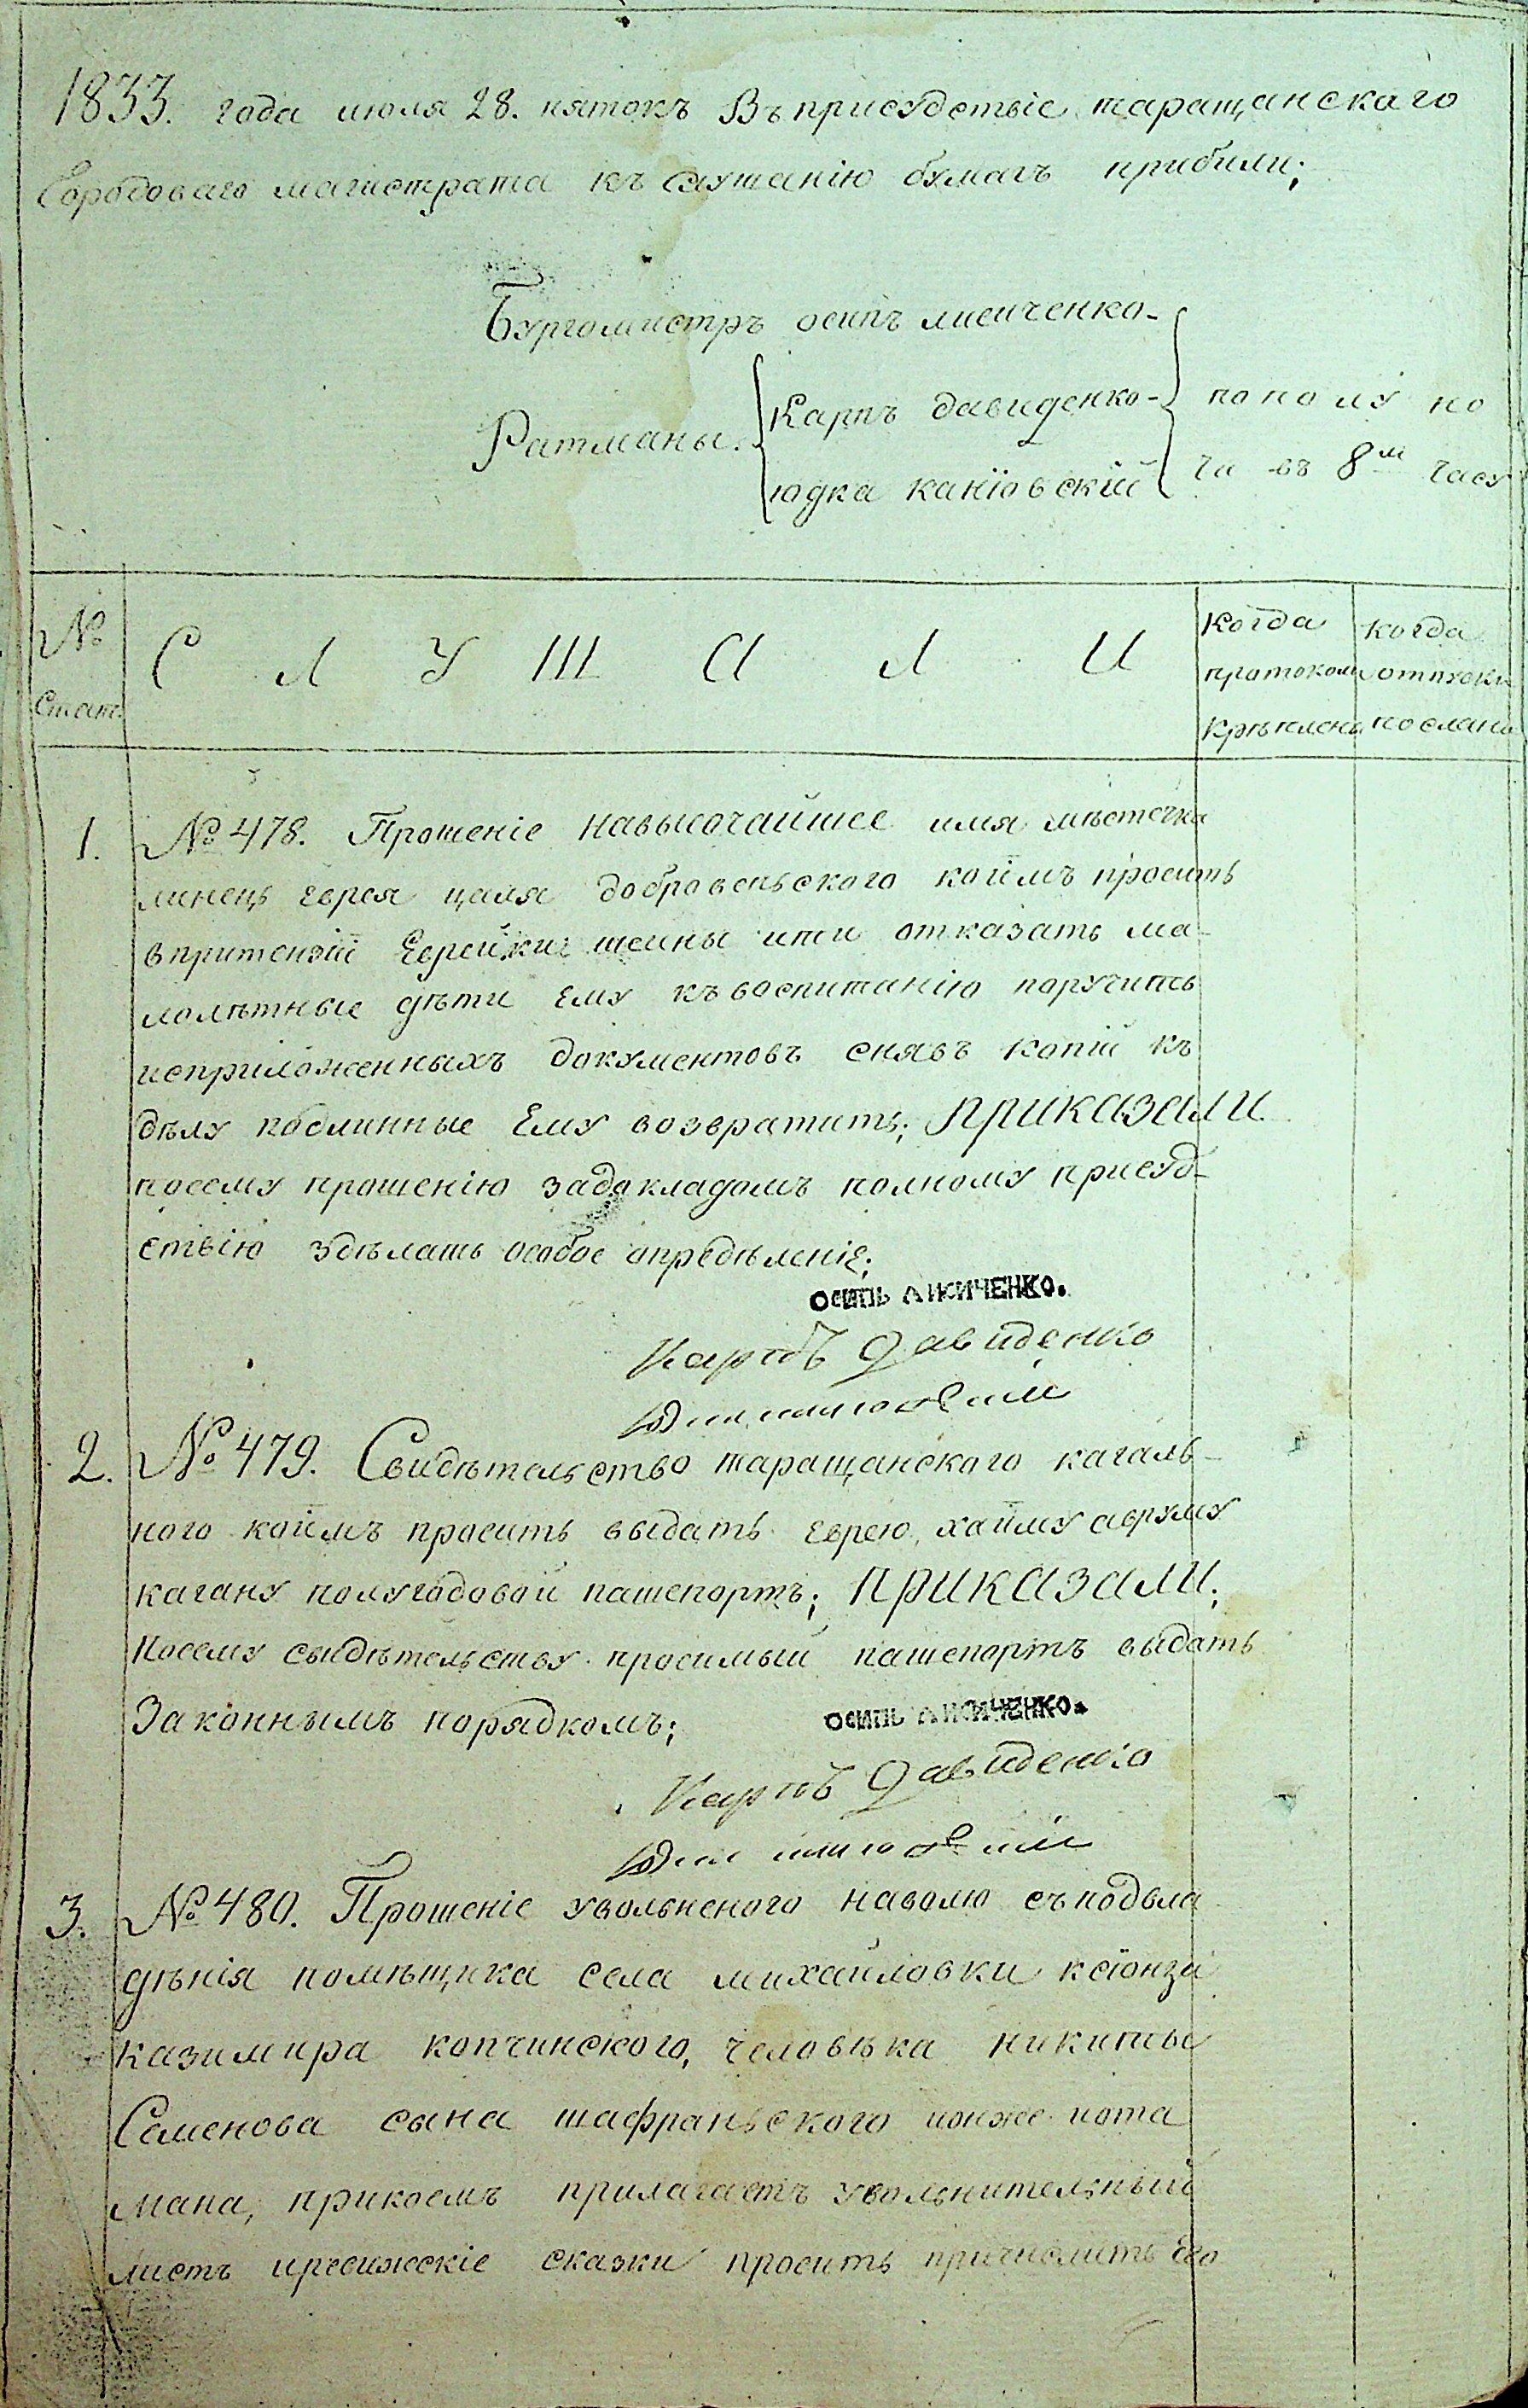 1833. года июля 28. пятокъ Въ присудствіе таращанскаго
Городоваго магистрата къ слушанію бумагъ прибили;
Бургомистръ осипъ лисиченко
Ратманы. Карпъ давиденко пополу но
юдка каніовскій чи въ 8м часу
№ Стат. СЛУШАЛИ Когда протоколы Крѣплены когда отпуски посланы
1. № 478. Прошеніе навысочайшее имя мѣстечка
линецъ еврея цаля добровеньского коимъ проситъ
впритензіи Еврейки шеины ити отказать ма-
лолѣтные дѣти ему къ воспитанію поручить
исприложенныхъ документовъ снявъ копіи къ
дѣлу подлинные Ему возвратить; приказали
посему прошенію задокладомъ полному присуд-
ствію здѣлать особое опредѣленіе;
осипъ лисиченко.
Карпъ Давиденко
2. № 479. Свидѣтельство таращанского кагаль-
ного коимъ проситъ выдать еврею хаиму авруму
кагану полугодовой пашепортъ; приказали;
Посему свидѣтельству просимый пашепортъ выдать
Законнымъ порядкомъ;
осипъ лисиченко.
Карпъ Давиденко
3. № 480. Прошеніе увольненого наволю съподвла
дѣнія помѣщика села михайловки ксіонза
казимира копчинского, человѣка никиты
Семенова сына шафраньского ионже пота
мана, прикоемъ прилагаетъ увольнительный
листъ иревижскіе сказки проситъ причислить его